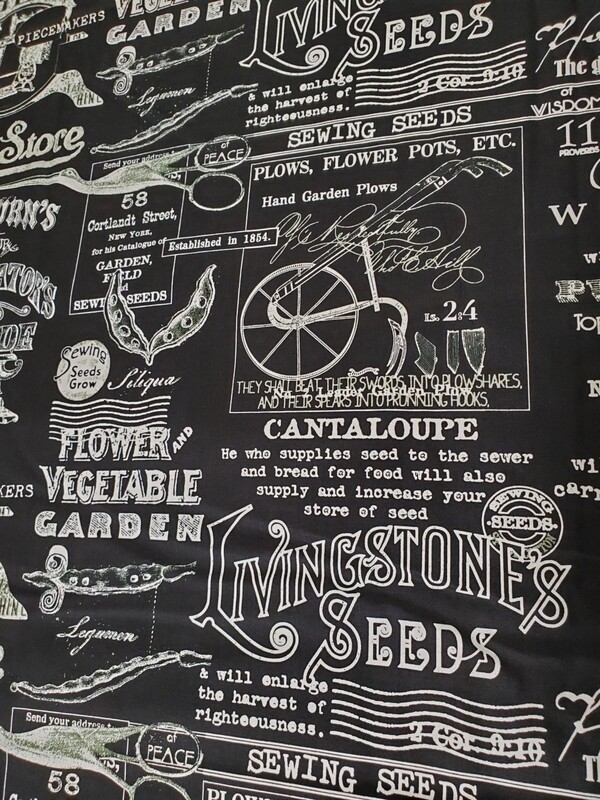 PIECEMAKERS
VEGETABLE
GARDEN
LIVINGSTONE'S
SEEDS
Legumen
& will enlarge
the harvest of
righteousness.
2 Cor. 9:10
The
of
WISDOM
11
PROVERBS
SEWING SEEDS
Store
Send your address
of
PEACE
58
Cortlandt Street,
NEW YORK,
for his Catalogue of
GARDEN,
FIELD
and
SEWING SEEDS
Established in 1854.
PLOWS, FLOWER POTS, ETC.
Hand Garden Plows
Yrs Respectfully
Is. 2:4
THEY SHALL BEAT THEIR SWORDS INTO PLOWSHARES,
AND THEIR SPEARS INTO PRUNNING HOOKS,
Sewing
Seeds
Grow
Siliqua
CANTALOUPE
He who supplies seed to the sewer
and bread for food will also
supply and increase your
store of seed
FLOWER AND
VEGETABLE
GARDEN
SEWING
SEEDS
LIVINGSTONE'S
SEEDS
Legumen
& will enlarge
the harvest of
righteousness.
2 Cor. 9:10
Send your address
of
PEACE
58
SEWING SEEDS